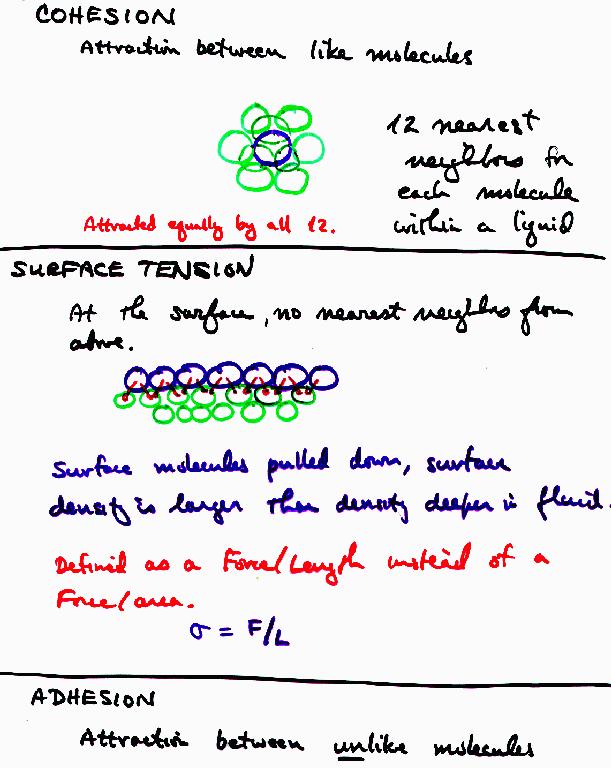 COHESION
Attraction between like molecules
12 nearest
neighbors for
each molecule
within a liquid
Attracted equally by all 12.
SURFACE TENSION
At the surface, no nearest neighbors from
above.
Surface molecules pulled down, surface
density is larger than density deeper in fluid.
Defined as a Force/Length instead of a
Force/area.
σ = F/L
ADHESION
Attraction between unlike molecules